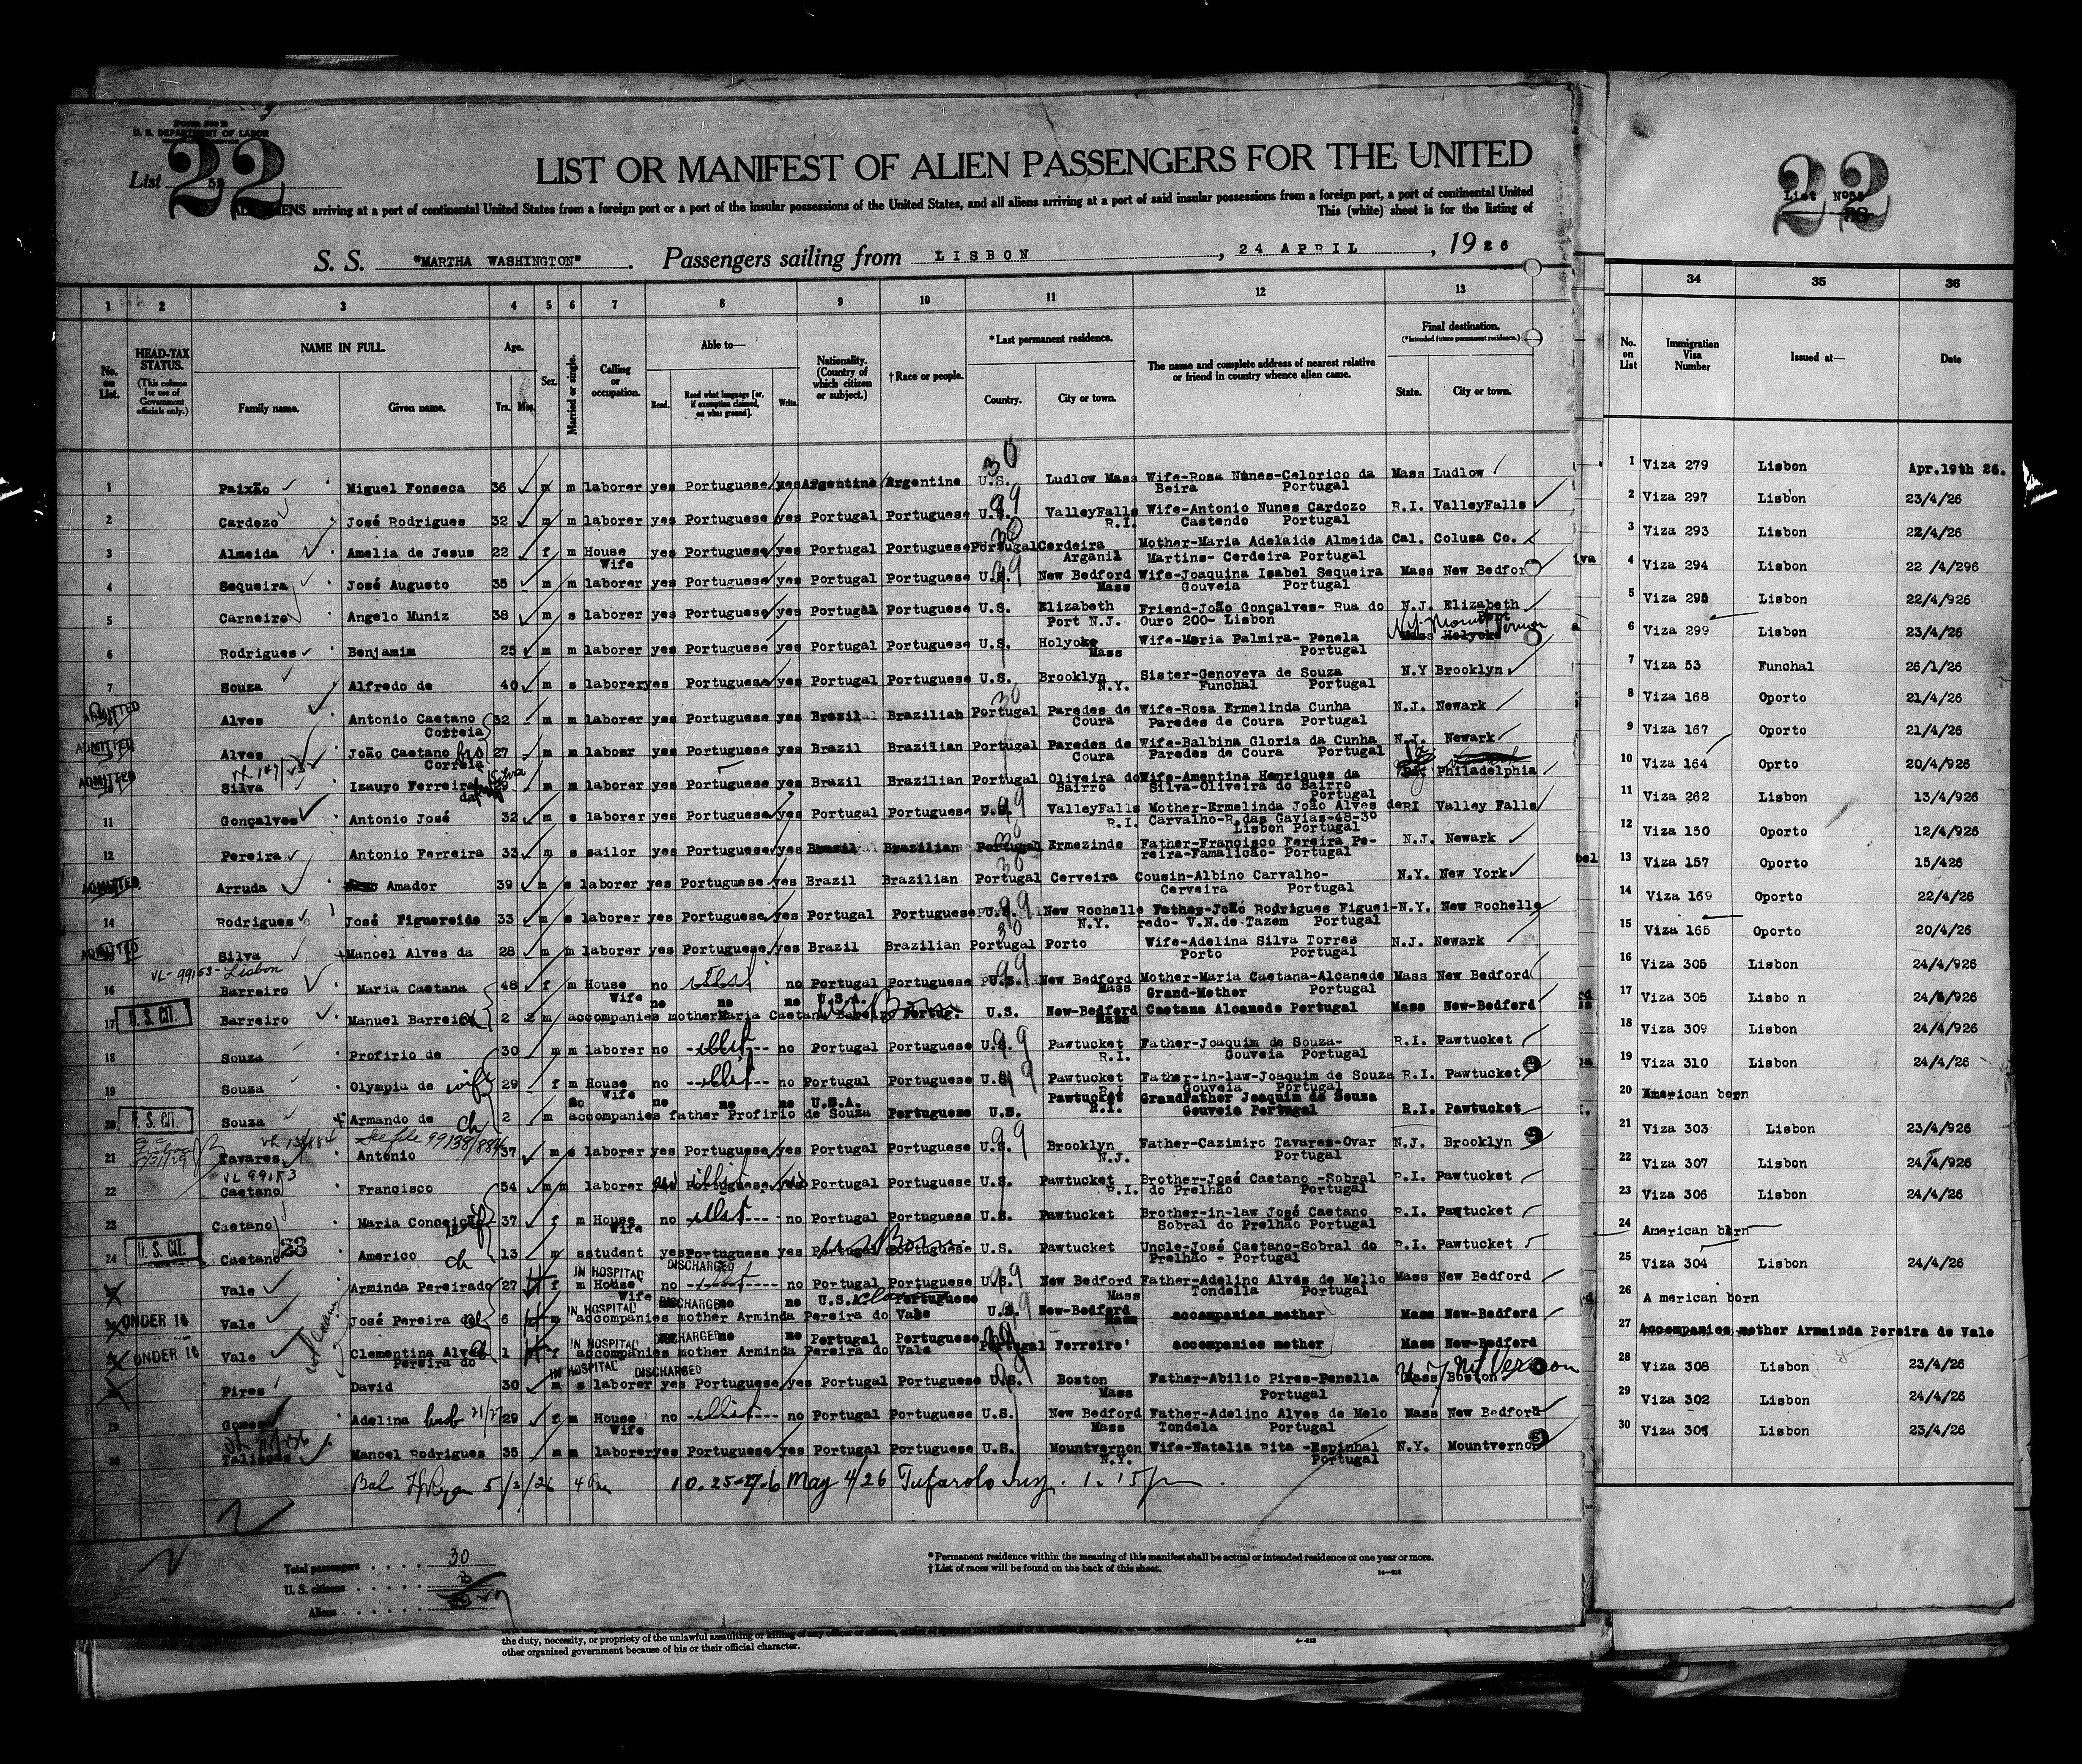 Form 500 B
U. S. DEPARTMENT OF LABOR
List 22
LIST OR MANIFEST OF ALIEN PASSENGERS FOR THE UNITED
ALIENS arriving at a port of continental United States from a foreign port or a port of the insular possessions of the United States, and all aliens arriving at a port of said insular possessions from a foreign port, a port of continental United
This (white) sheet is for the listing of
S. S. "MARTHA WASHINGTON". Passengers sailing from LISBON, 24 APRIL, 1926
1 2 3 4 5 6 7 8 9 10 11 12 13
No. on List.
HEAD-TAX STATUS.
(This column for use of Government officials only.)
NAME IN FULL.
Family name. Given name.
Age.
Yrs. Mos.
Sex.
Married or single.
Calling or occupation.
Able to—
Read. Read what language [or, if exemption claimed, on what ground]. Write.
Nationality. (Country of which citizen or subject.)
†Race or people.
*Last permanent residence.
Country. City or town.
The name and complete address of nearest relative or friend in country whence alien came.
Final destination.
(*Intended future permanent residence.)
State. City or town.
1 Paixão Miguel Fonseca 36 m m laborer yes Portuguese yes Argentine Argentine U.S. Ludlow Mass Wife-Rosa Nunes-Celorico da Beira Portugal Mass Ludlow
2 Cardozo José Rodrigues 32 m m laborer yes Portuguese yes Portugal Portuguese U.S. ValleyFalls R.I. Wife-Antonio Nunes Cardozo Castendo Portugal R.I. ValleyFalls
3 Almeida Amelia de Jesus 22 f m House Wife yes Portuguese yes Portugal Portuguese Portugal Cerdeira Arganil Mother-Maria Adelaide Almeida Martins- Cerdeira Portugal Cal. Colusa Co.
4 Sequeira José Augusto 35 m m laborer yes Portuguese yes Portugal Portuguese U.S. New Bedford Mass Wife-Joaquina Isabel Sequeira Gouveia Portugal Mass New Bedfor
5 Carneiro Angelo Muniz 38 m s laborer yes Portuguese yes Portugal Portuguese U.S. Elizabeth Port N.J. Friend-João Gonçalves- Rua do Ouro 200- Lisbon N.J. Elizabeth Port
6 Rodrigues Benjamim 25 m m laborer yes Portuguese yes Portugal Portuguese U.S. Holyoke Mass Wife-Maria Palmira- Penela Portugal Mass Holyoke N.Y. Mount Vernon
7 Souza Alfredo de 40 m s laborer yes Portuguese yes Portugal Portuguese U.S. Brooklyn N.Y. Sister-Genoveva de Souza Funchal Portugal N.Y Brooklyn
ADMITTED Alves Antonio Caetano Correia 32 m m laborer yes Portuguese yes Brazil Brazilian Portugal Paredes de Coura Wife-Rosa Ermelinda Cunha Paredes de Coura Portugal N.J. Newark
ADMITTED Alves João Caetano Correia bro 27 m m labour yes Portuguese yes Brazil Brazilian Portugal Paredes de Coura Wife-Balbina Gloria da Cunha Paredes de Coura Portugal N.J. Newark
ADMITTED Silva Izauro Ferreira da 29 m m laborer yes Portuguese yes Brazil Brazilian Portugal Oliveira do Bairro Wife-Amentina Henriques da Silva-Oliveira do Bairro Portugal Pa Philadelphia
11 Gonçalves Antonio José 32 m s laborer yes Portuguese yes Portugal Portuguese U.S. ValleyFalls R.I. Mother-Ermelinda João Alves de Carvalho-R.das Gavias-48-3º Lisbon Portugal RI Valley Falls
12 Pereira Antonio Ferreira 33 m s sailor yes Portuguese yes Brazil Brazilian Portugal Ermezinde Father-Francisco Fereira Pe- reira-Famalicão- Portugal N.J. Newark
ADMITTED Arruda Amador 39 m s laborer yes Portuguese yes Brazil Brazilian Portugal Cerveira Cousin-Albino Carvalho- Cerveira Portugal N.Y. New York
14 Rodrigues José Figuereido 33 m s laborer yes Portuguese yes Portugal Portuguese U.S. New Rochelle N.Y. Father-João Rodrigues Figuei- redo- V.N.de Tazem Portugal N.Y. New Rochelle
ADMITTED Silva Manoel Alves da 28 m m laborer yes Portuguese yes Brazil Brazilian Portugal Porto Wife-Adelina Silva Torres Porto Portugal N.J. Newark
VL-99153-Lisbon
16 Barreiro Maria Caetana 48 f m House Wife no illit no Portugal Portuguese U.S. New Bedford Mass Mother-Maria Caetana-Alcanede Portugal Mass New Bedford
17 U. S. CIT. Barreiro Manuel Barreiro 2 m no no no U.S.A. Born accompanies mother Maria Caetana U.S. New-Bedford Mass Grand-Mother Caetana Alcanede Portugal Mass New-Bedford
18 Souza Profirio de 30 m m laborer no illit no Portugal Portuguese U.S. Pawtucket R.I. Father-Joaquim de Souza- Gouveia Portugal R.I. Pawtucket
19 Souza Olympia de wife 29 f m House Wife no illit no Portugal Portuguese U.S. Pawtucket R.I Father-in-law-Joaquim de Souza Gouveia Portugal R.I. Pawtucket
20 U. S. CIT. Souza Armando de ch 2 m no no no U.S.A. accompanies father Profirio de Souza Portuguese U.S. Pawtucket R.I. GrandFather Joaquim de Souza Gouveia Portugal R.I. Pawtucket
See file 99138/884
21 Tavares Antonio 37 m s laborer yes Portuguese yes Portugal Portuguese U.S. Brooklyn N.J. Father-Cazimiro Tavares-Ovar Portugal N.J. Brooklyn
VL 99153
22 Caetano Francisco 54 m m laborer illit Portuguese Portugal Portuguese U.S. Pawtucket R.I. Brother-José Caetano -Sobral do Prelhão Portugal R.I. Pawtucket
23 Caetano Maria Conceição wife 37 f m House Wife no illit no Portugal Portuguese U.S. Pawtucket Brother-in-law José Caetano Sobral do Prelhão Portugal R.I. Pawtucket
24 U. S. CIT. Caetano 23 Americo ch 13 m s student yes Portuguese yes Portugal Portuguese US Born U.S. Pawtucket Uncle-José Caetano-Sobral do Prelhão - Portugal R.I. Pawtucket
Vale Arminda Pereira do 27 f m House Wife IN HOSPITAL DISCHARGED no no Portugal Portuguese U.S. New Bedford Mass Father-Adelino Alves de Mello Tondella Portugal Mass New Bedford
UNDER 16 Vale José Pereira do ch 6 m IN HOSPITAL DISCHARGED no no U.S.A. Portuguese accompanies mother Arminda Pereira do Vale U.S. New-Bedford Mass accompanies mother Mass New-Bedford
UNDER 16 Vale Clementina Alves Pereira do 1 f IN HOSPITAL DISCHARGED no no Portugal Portuguese accompanies mother Arminda Pereira do Vale Portugal Ferreiro' accompanies mother Mass New-Bedford
Pires David 30 m s laborer IN HOSPITAL DISCHARGED yes Portuguese yes Portugal Portuguese U.S. Boston Mass Father-Abilio Pires-Penella Portugal Mass Boston N.Y Mt Vernon
29 Gomes Adelina 29 f m House Wife no illit no Portugal Portuguese U.S. New Bedford Mass Father-Adelino Alves de Melo Tondela Portugal Mass New Bedford
30 Manoel Rodrigues 35 m m laborer yes Portuguese yes Portugal Portuguese U.S. Mountvernon N.Y. Wife-Natalia Rita -Espinhal Portugal N.Y. Mountvernon
5/3/26 May 4/26 1.15 pm
Total passengers . . . . . 30
U. S. citizens . . . . . 3
Aliens . . . . . .
*Permanent residence within the meaning of this manifest shall be actual or intended residence of one year or more.
†List of races will be found on the back of this sheet.
the duty, necessity, or propriety of the unlawful assaulting or killing of any officer or officers,
other organized government because of his or their official character.
22
List Nº
34 35 36
No. on List
Immigration Visa Number
Issued at—
Date
1 Viza 279 Lisbon Apr.19th 26.
2 Viza 297 Lisbon 23/4/26
3 Viza 293 Lisbon 22/4/26
4 Viza 294 Lisbon 22 /4/296
5 Viza 295 Lisbon 22/4/926
6 Viza 299 Lisbon 23/4/26
7 Viza 53 Funchal 26/1/26
8 Viza 168 Oporto 21/4/26
9 Viza 167 Oporto 21/4/26
10 Viza 164 Oprto 20/4/926
11 Viza 262 Lisbon 13/4/926
12 Viza 150 Oporto 12/4/926
13 Viza 157 Oporto 15/426
14 Viza 169 Oporto 22/4/26
15 Viza 165 Oporto 20/4/26
16 Viza 305 Lisbon 24/4/926
17 Viza 305 Lisbo n 24/4/926
18 Viza 309 Lisbon 24/4/926
19 Viza 310 Lisbon 24/4/26
20 American born
21 Viza 303 Lisbon 23/4/926
22 Viza 307 Lisbon 24/4/926
23 Viza 306 Lisbon 24/4/26
24 American born
25 Viza 304 Lisbon 24/4/26
26 A merican born
27 Accompanies mother Arminda Pereira de Vale
28 Viza 308 Lisbon 23/4/26
29 Viza 302 Lisbon 24/4/26
30 Viza 301 Lisbon 23/4/26